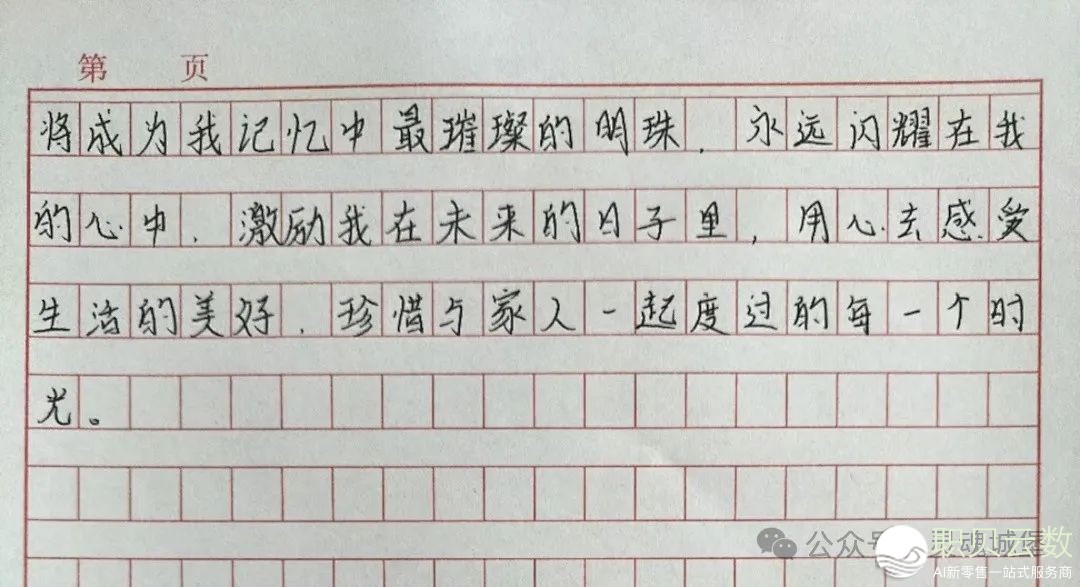 第 页
将成为我记忆中最璀璨的明珠，永远闪耀在我
的心中，激励我在未来的日子里，用心去感受
生活的美好，珍惜与家人一起度过的每一个时
光。
公众号
职贝云数
AI新零售一站式服务商